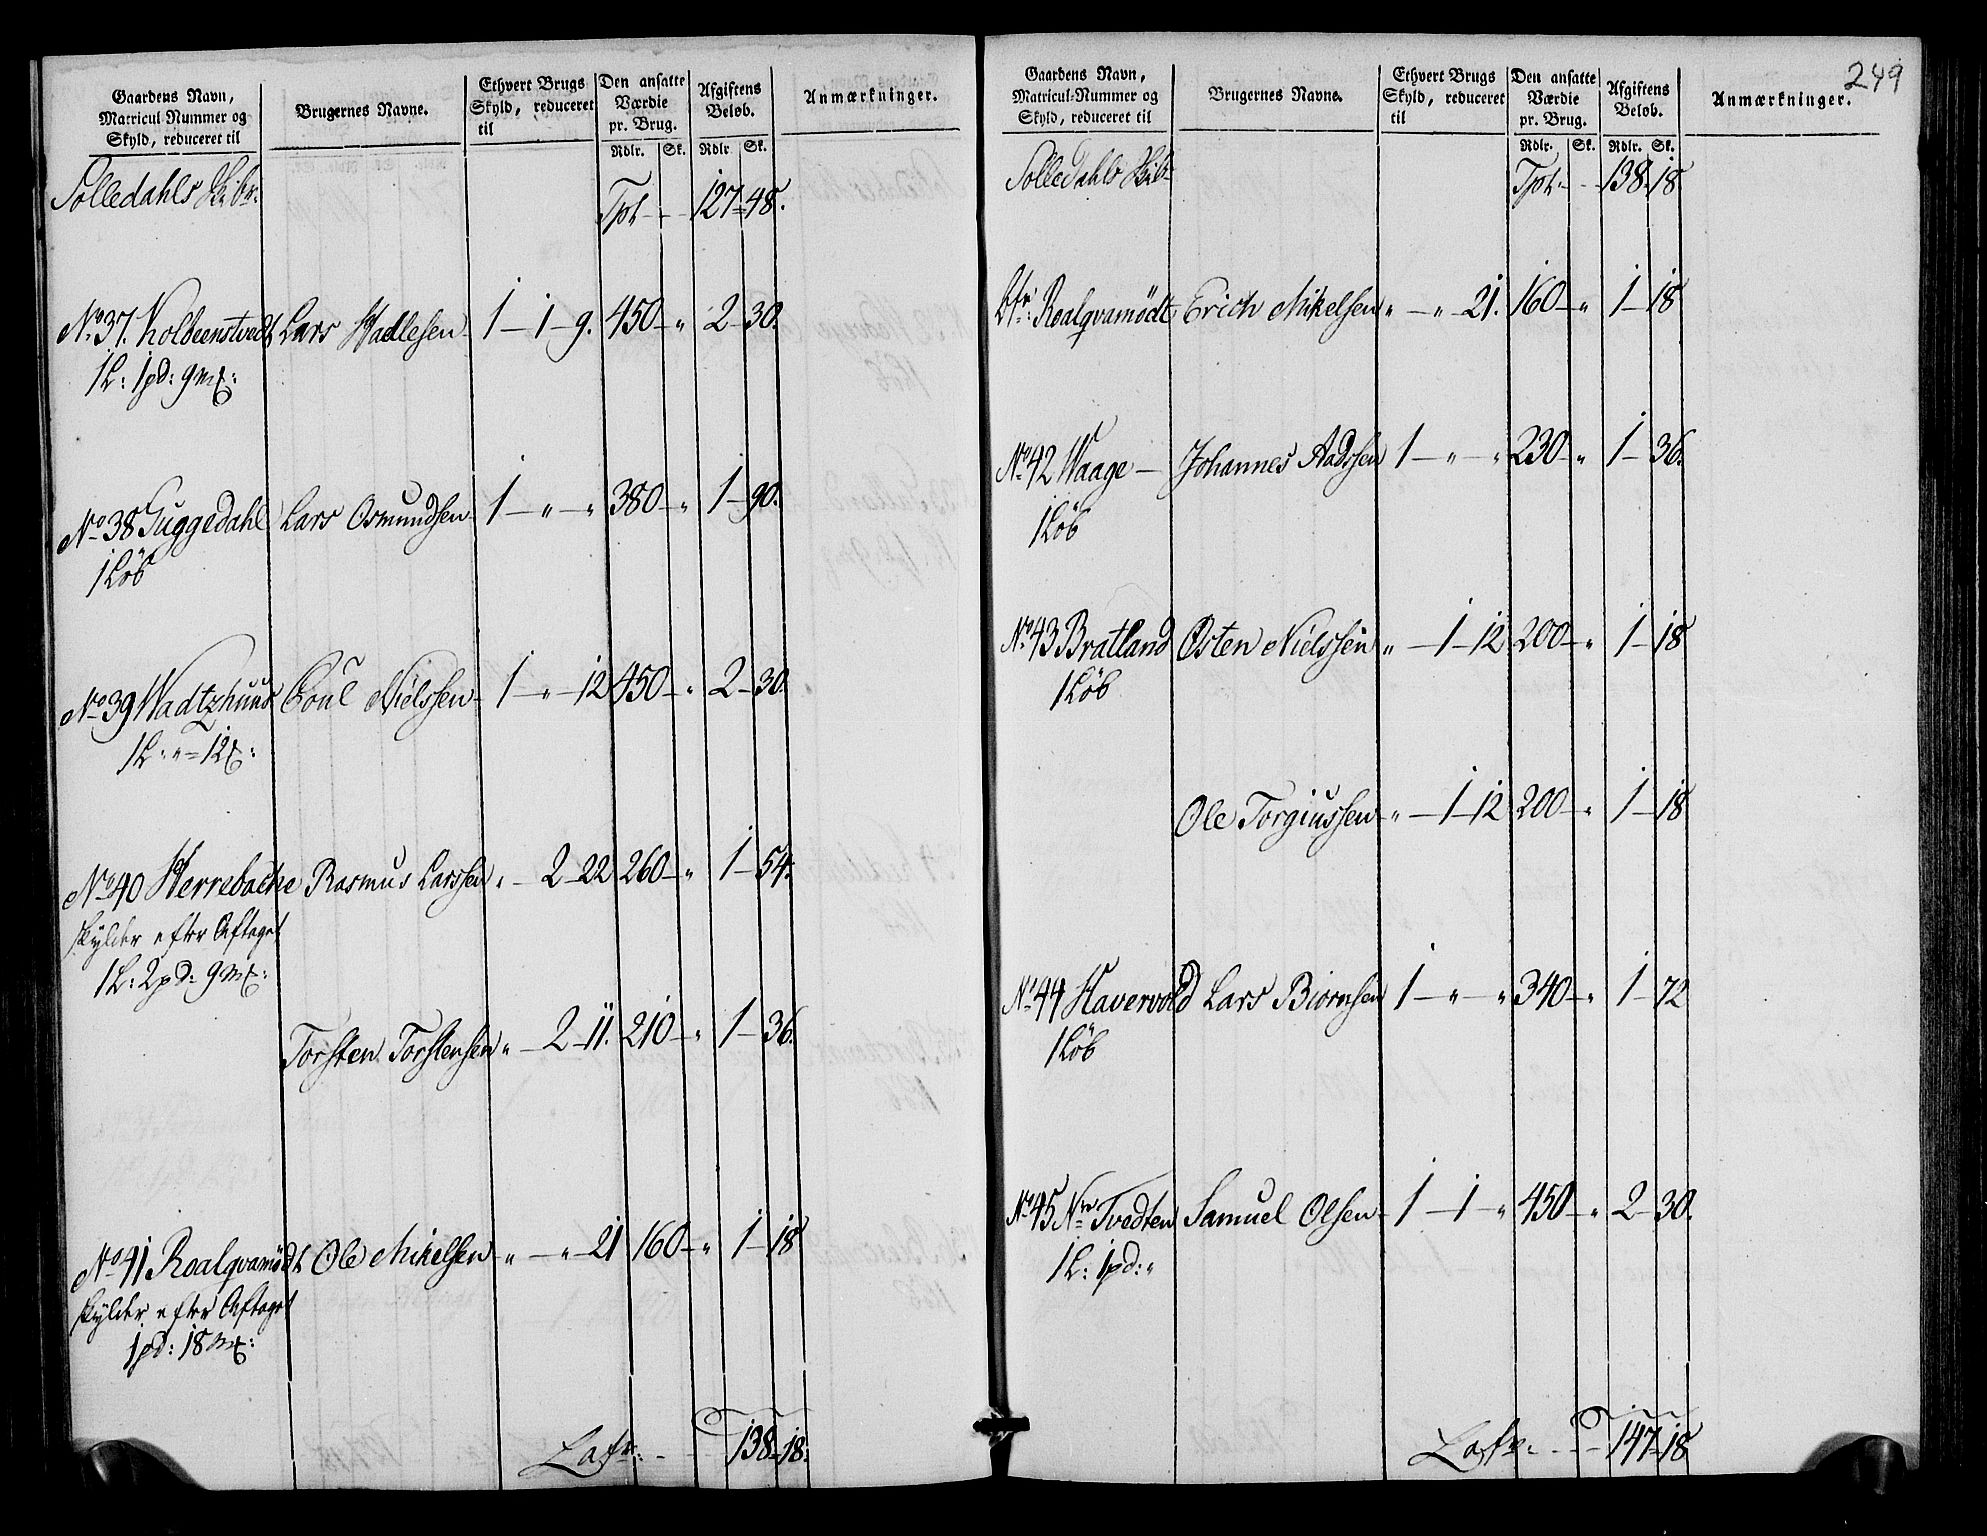 Gaardens Navn,
Matricul-Nummer og
Skyld, reduceret til
Brugernes Navne.
Ethvert Brugs
Skyld, reduceret
til
Den ansatte
Værdie
pr. Brug.
Rdlr. Sk.
Afgiftens
Beløb.
Rdlr Sk.
Anmærkninger.
Solledahls Skibr:
Tpt 127-48.
No 37. Kolbeenstvedt Lars Hadlesen 1-1-9. 450-" 2-30.
1L: 1pd: 9mk:
No 38 Guggedahl Lars Osmundsen 1-"-" 380-" 1-90.
1 Løb
No 39 Wadtzhuus Poul Nielssen 1-"-12 450-" 2-30.
1L: "-12mk:
No 40 Herrebache Rasmus Larssen "-2-22 260-" 1-54.
skylder efter Aftaget
1L: 2pd: 9mk:
Torsten Torstensen "-2-11. 210-" 1-36.
No 41 Roalqvamødt Ole Mikelsen "-"-21 160-" 1-18
skylder efter Aftaget
1pd: 18mk:
Latr: 138-18.
249
Gaardens Navn,
Matricul-Nummer og
Skyld, reduceret til
Brugernes Navne.
Ethvert Brugs
Skyld, reduceret
til
Den ansatte
Værdie
pr. Brug.
Rdlr. Sk.
Afgiftens
Beløb.
Rdlr. Sk.
Anmærkninger.
Solledahls Skib
Tpt 138-18
Roalqvamødt Erich Mikelsen "-"-21. 160-" 1-18
No 42 Waage Johannes Aadssen 1-"-" 230-" 1-36.
1 Løb
No 43 Bratland Østen Nielssen "-1-12 200-" 1-18
1 Løb
Ole Torgiussen "-1-12 200-" 1-18
No 44 Havervold Lars Biørnsen 1-"-" 340-" 1-72
1 Løb
No 45 Nr Tvedten Samuel Olsen 1-1-" 450-" 2-30.
1L: 1pd: "
Latr: 147-18